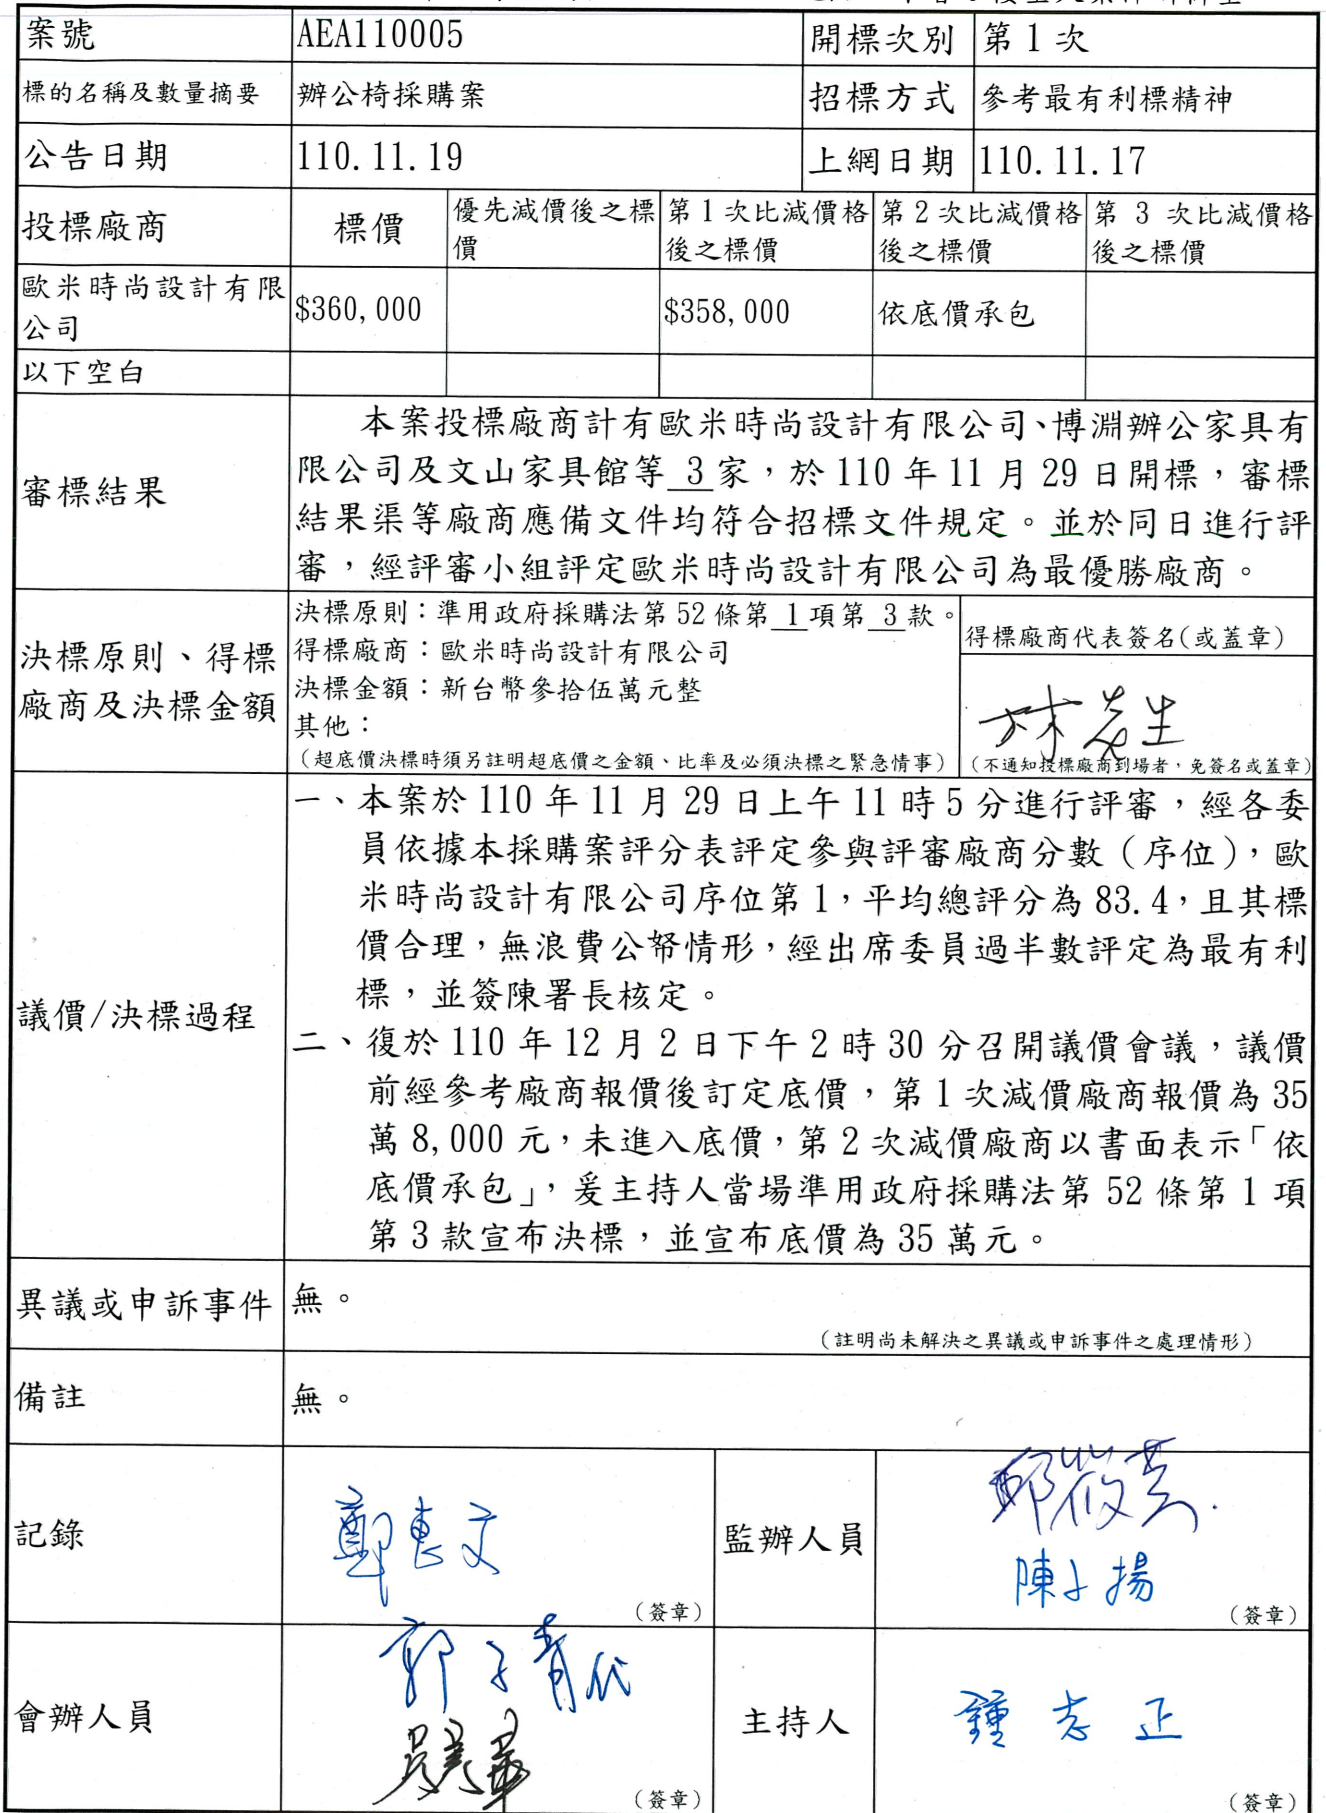 案號 AEA110005 開標次別 第1次
標的名稱及數量摘要 辦公椅採購案 招標方式 參考最有利標精神
公告日期 110.11.19 上網日期 110.11.17
投標廠商 標價 優先減價後之標價 第1次比減價格後之標價 第2次比減價格後之標價 第3次比減價格後之標價
歐米時尚設計有限公司 $360,000 $358,000 依底價承包
以下空白
審標結果
本案投標廠商計有歐米時尚設計有限公司、博淵辦公家具有
限公司及文山家具館等 3 家，於110年11月29日開標，審標
結果渠等廠商應備文件均符合招標文件規定。並於同日進行評
審，經評審小組評定歐米時尚設計有限公司為最優勝廠商。
決標原則、得標
廠商及決標金額
決標原則：準用政府採購法第52條第 1 項第 3 款。
得標廠商：歐米時尚設計有限公司
決標金額：新台幣參拾伍萬元整
其他：
（超底價決標時須另註明超底價之金額、比率及必須決標之緊急情事）
得標廠商代表簽名(或蓋章)
（不通知投標廠商到場者，免簽名或蓋章）
議價/決標過程
一、本案於110年11月29日上午11時5分進行評審，經各委
員依據本採購案評分表評定參與評審廠商分數（序位），歐
米時尚設計有限公司序位第1，平均總評分為83.4，且其標
價合理，無浪費公帑情形，經出席委員過半數評定為最有利
標，並簽陳署長核定。
二、復於110年12月2日下午2時30分召開議價會議，議價
前經參考廠商報價後訂定底價，第1次減價廠商報價為35
萬8,000元，未進入底價，第2次減價廠商以書面表示「依
底價承包」，爰主持人當場準用政府採購法第52條第1項
第3款宣布決標，並宣布底價為35萬元。
異議或申訴事件 無。
（註明尚未解決之異議或申訴事件之處理情形）
備註 無。
記錄 鄭惠文 （簽章）
監辦人員 邱筱芸 陳子揚 （簽章）
會辦人員 郭子青代 （簽章）
主持人 鍾志正 （簽章）